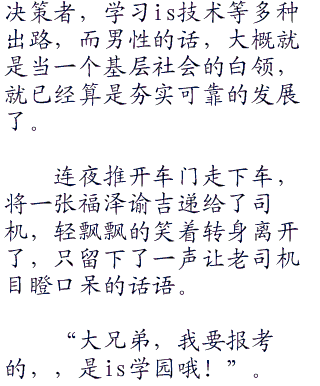 决策者，学习is技术等多种
出路，而男性的话，大概就
是当一个基层社会的白领，
就已经算是夯实可靠的发展
了。
连夜推开车门走下车，
将一张福泽谕吉递给了司
机，轻飘飘的笑着转身离开
了，只留下了一声让老司机
目瞪口呆的话语。
“大兄弟，我要报考
的，，是is学园哦！”。